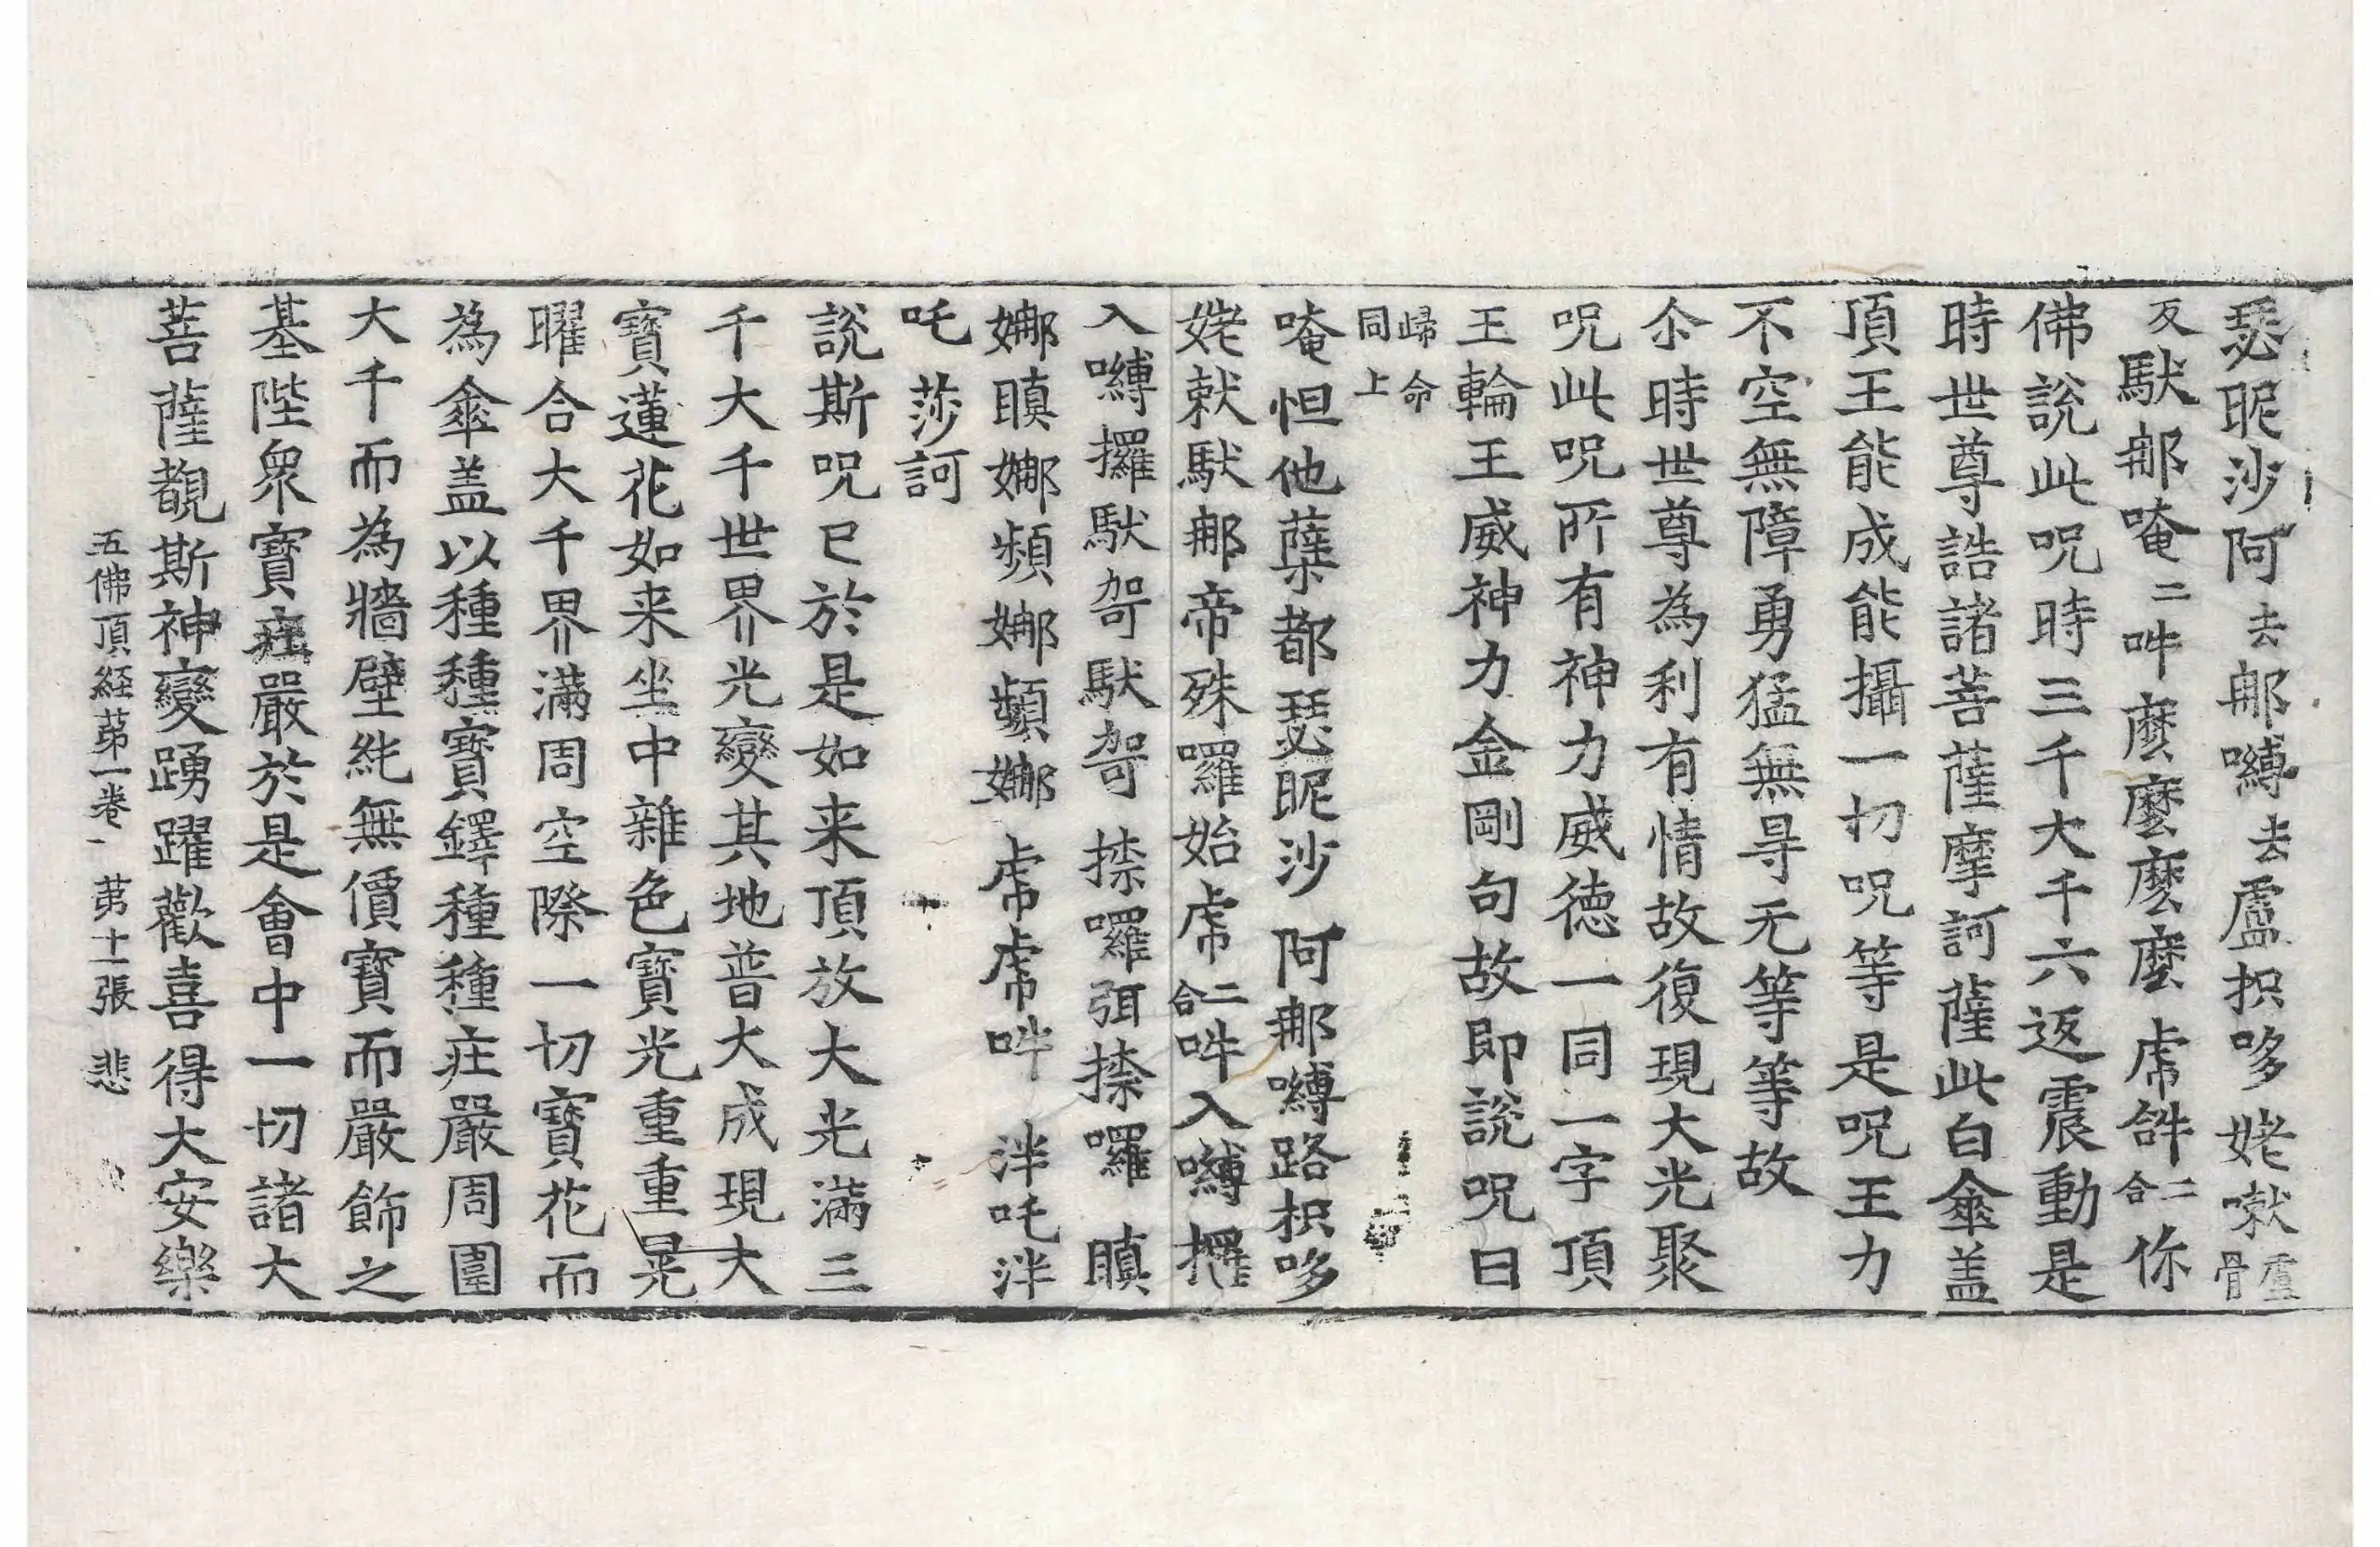 瑟昵沙阿去那嚩去盧枳哆姥㗛盧骨
反䭾那唵二吽麼麼麼麼虎𤙖二合你
佛說此呪時三千大千六返震動是
時世尊誥諸菩薩摩訶薩此白傘盖
頂王能成能攝一切呪等是呪王力
不空無障勇猛無㝵无等等故
尒時世尊為利有情故復現大光聚
呪此呪所有神力威德一同一字頂
王輪王威神力金剛句故即說呪曰
歸命同上
唵怛他蘖都瑟昵沙阿那嚩路枳哆
姥㗛䭾那帝殊囉始虎二合吽入嚩攞
入嚩攞䭾哿䭾哿捺囉弭捺囉瞋
娜瞋娜頻娜頻娜虎虎吽泮吒泮
吒莎訶
說斯呪已於是如来頂放大光滿三
千大千世界光變其地普大成現大
寶蓮花如来坐中雜色寶光重重晃
曜合大千界滿周空際一切寶花而
為傘盖以種種寶鐸種種庄嚴周圍
大千而為牆壁純無價寶而嚴飾之
基陛眾寶莊嚴於是會中一切諸大
菩薩覩斯神變踴躍歡喜得大安樂
五佛頂経苐一卷 苐十張 悲